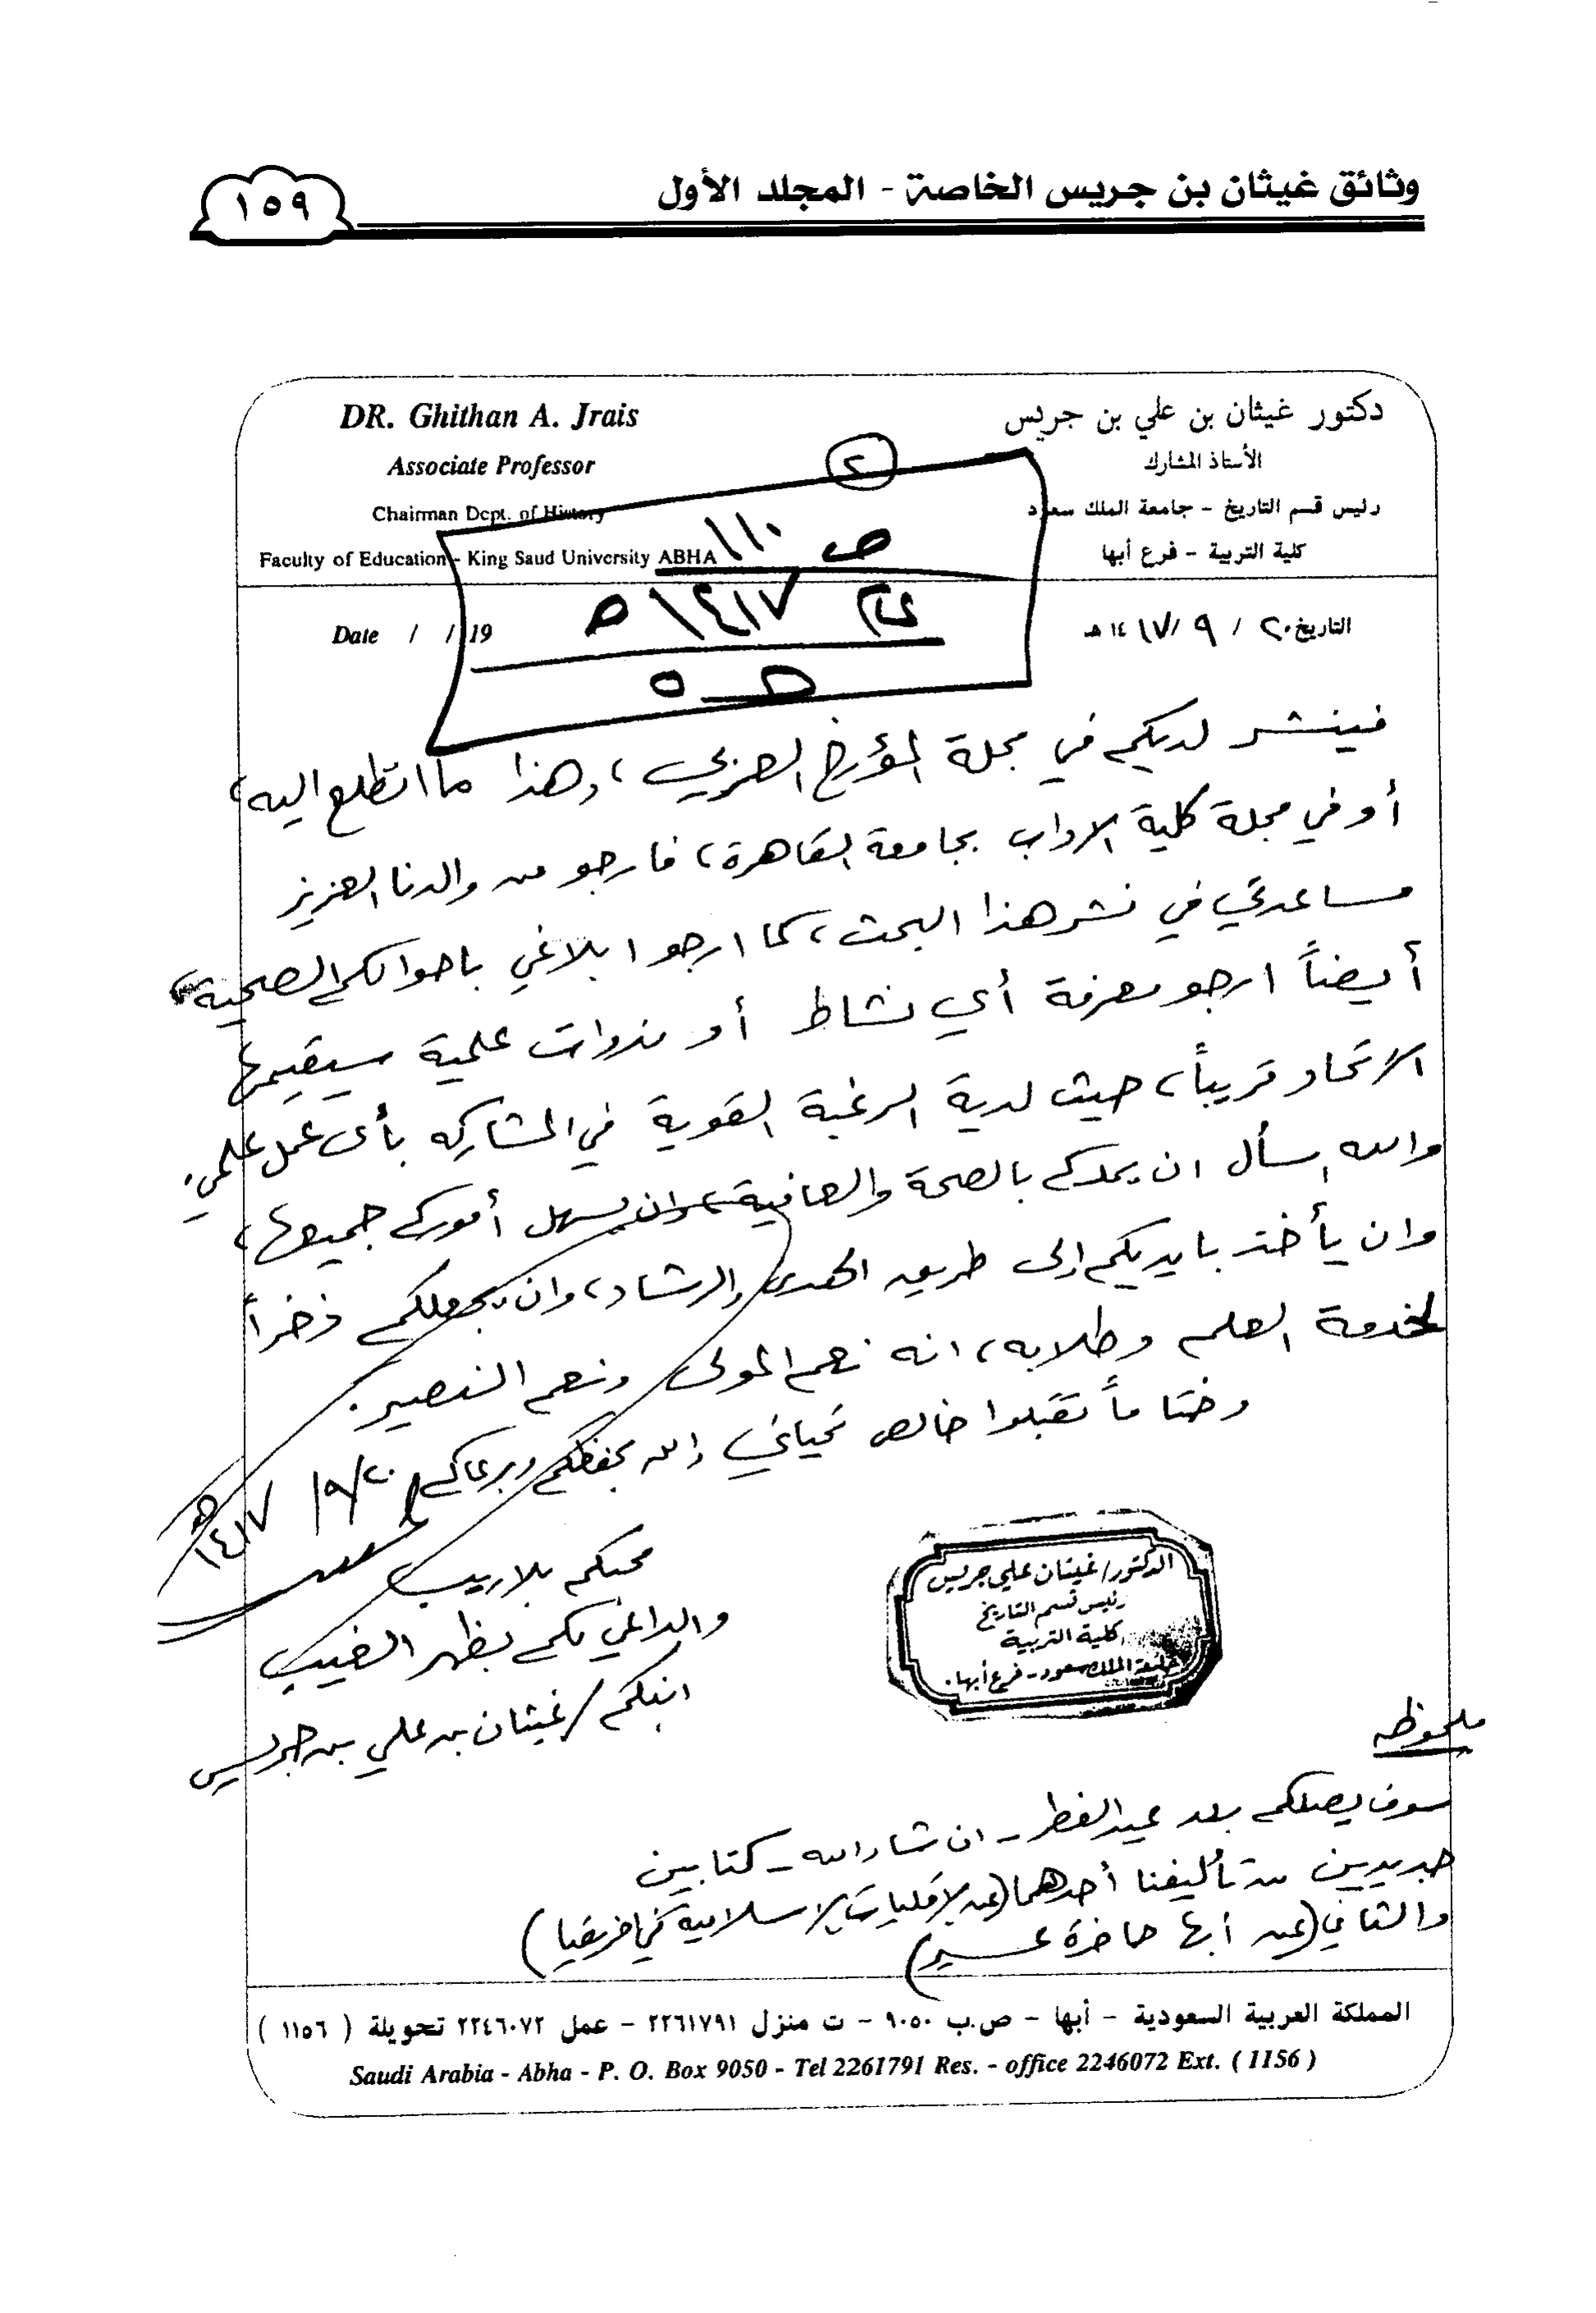 وثائق غيثان بن جريس الخاصة - المجلد الأول
١٥٩
DR. Ghithan A. Jrais
Associate Professor
Chairman Dept. of History
Faculty of Education - King Saud University ABHA
دكتور غيثان بن علي بن جريس
الأستاذ المشارك
رئيس قسم التاريخ - جامعة الملك سعود
كلية التربية - فرع أبها
٢
ص ١١٠
١٤١٧ هـ
Date / / 19
التاريخ ٢٠ / ٩ / ١٤١٧ هـ
فينشر لديكم في مجلة المؤرخ العربي، وهذا ما اتطلع اليه،
أو في مجلة كلية الاداب بجامعة القاهرة، فارجو من والدنا العزيز
مساعدتي في نشر هذا البحث، كما ارجو ابلاغي باحوالكم الصحية،
أيضاً ارجو معرفة أي نشاط أو ندوات علمية سيقيمها
الاتحاد قريباً، حيث لدية الرغبة القوية في المشاركه بأى عمل علمي.
والله اسأل ان يمدكم بالصحة والعافية، وان يسهل أموركم جميعها،
وان يأخذ بايديكم إلى طريق الهدى والرشاد، وان يجعلكم ذخراً
لخدمة العلم وطلابه، انه نعم المولى ونعم النصير.
وختاماً تقبلوا خالص تحياتي والله يحفظكم ويرعاكم
٢٠/٩/١٤١٧هـ
محبكم بلاريب
والداعي لكم بظهر الغيب
ابنكم/ غيثان بن علي بن جريس
الدكتور/ غيثان علي جريس
رئيس قسم التاريخ
كلية التربية
جامعة الملك سعود - فرع أبها.
ملحوظه
سوف يصلكم بعد عيد الفطر - ان شاء الله - كتابين
جديدين من تأليفنا أحدهما (عن الاقليات الاسلامية في افريقيا)
والثاني (عن أبها حاضرة عسير)
المملكة العربية السعودية - أبها - ص.ب ٩٠٥٠ - ت منزل ٢٢٦١٧٩١ - عمل ٢٢٤٦٠٧٢ تحويلة ( ١١٥٦ )
Saudi Arabia - Abha - P. O. Box 9050 - Tel 2261791 Res. - office 2246072 Ext. ( 1156 )